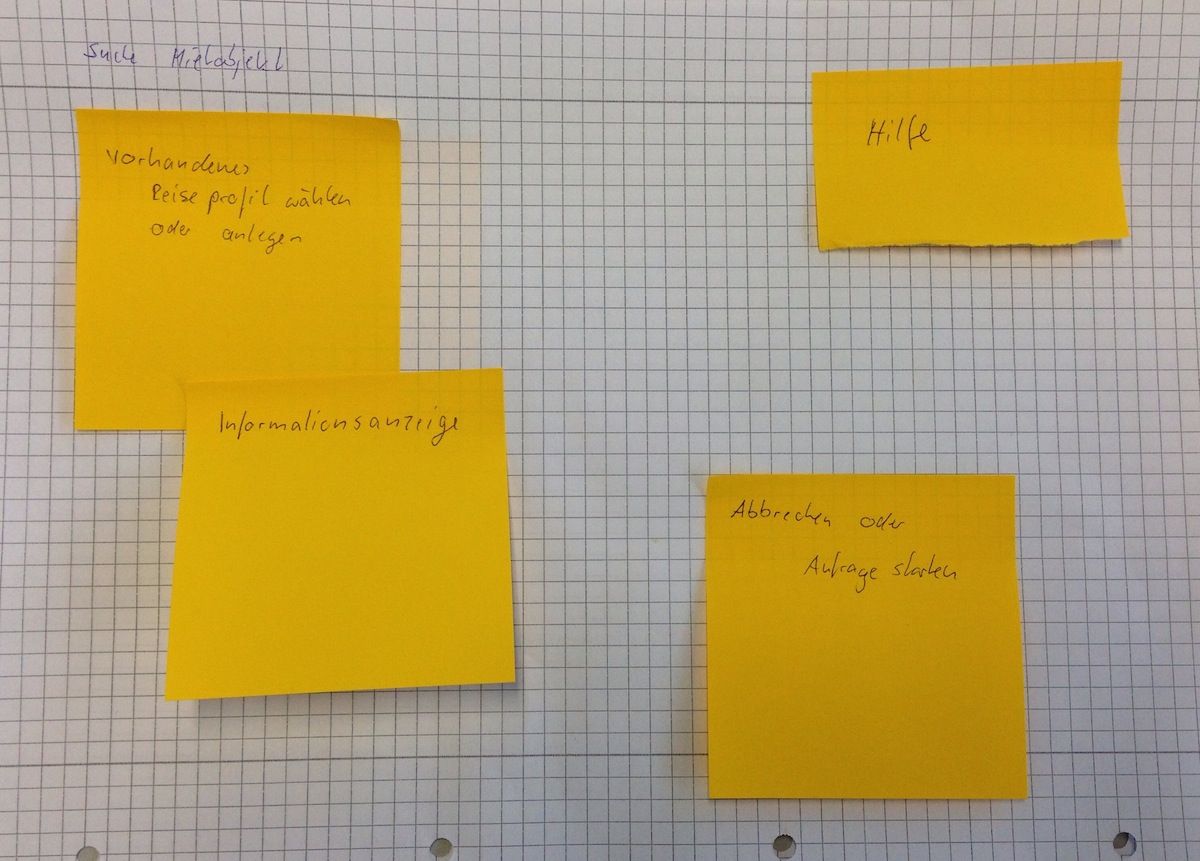 Suche Mietobjekt
Hilfe
Vorhandenes
Reiseprofil wählen
oder anlegen
Informationsanzeige
Abbrechen oder
Anfrage starten